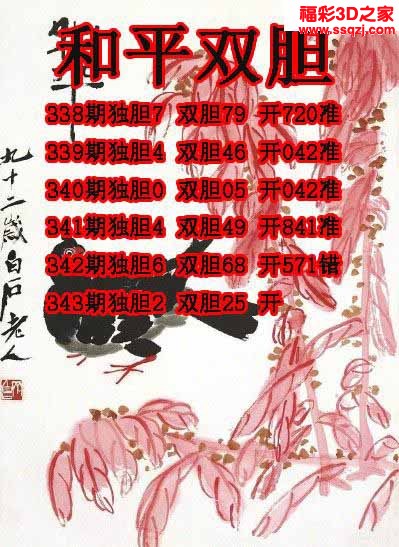 福彩3D之家
www.ssqzj.com
和平双胆
338期独胆7 双胆79 开720准
339期独胆4 双胆46 开042准
340期独胆0 双胆05 开042准
341期独胆4 双胆49 开841准
342期独胆6 双胆68 开571错
343期独胆2 双胆25 开
九十二岁白石老人